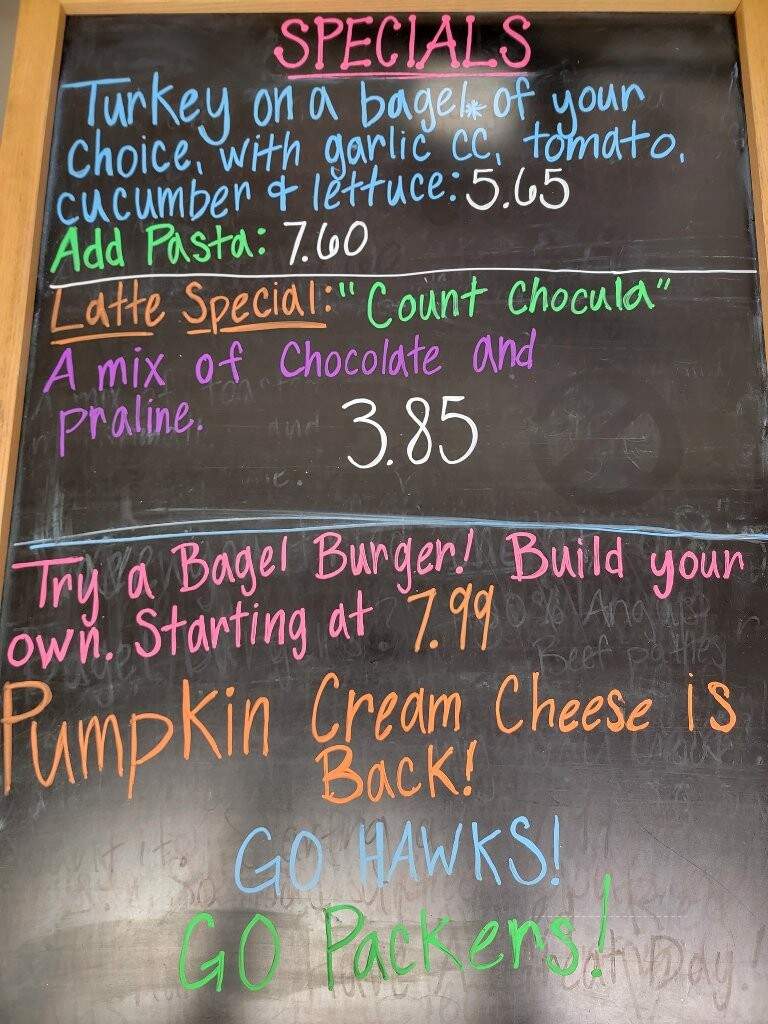 SPECIALS
Turkey on a bagel* of your
choice, with garlic cc, tomato,
cucumber & lettuce: 5.65
Add Pasta: 7.60
Latte Special: "Count Chocula"
A mix of Chocolate and
praline. 3.85
Try a Bagel Burger! Build your
own. Starting at 7.99
Beef patties
Pumpkin Cream Cheese is
Back!
GO HAWKS!
GO Packers!